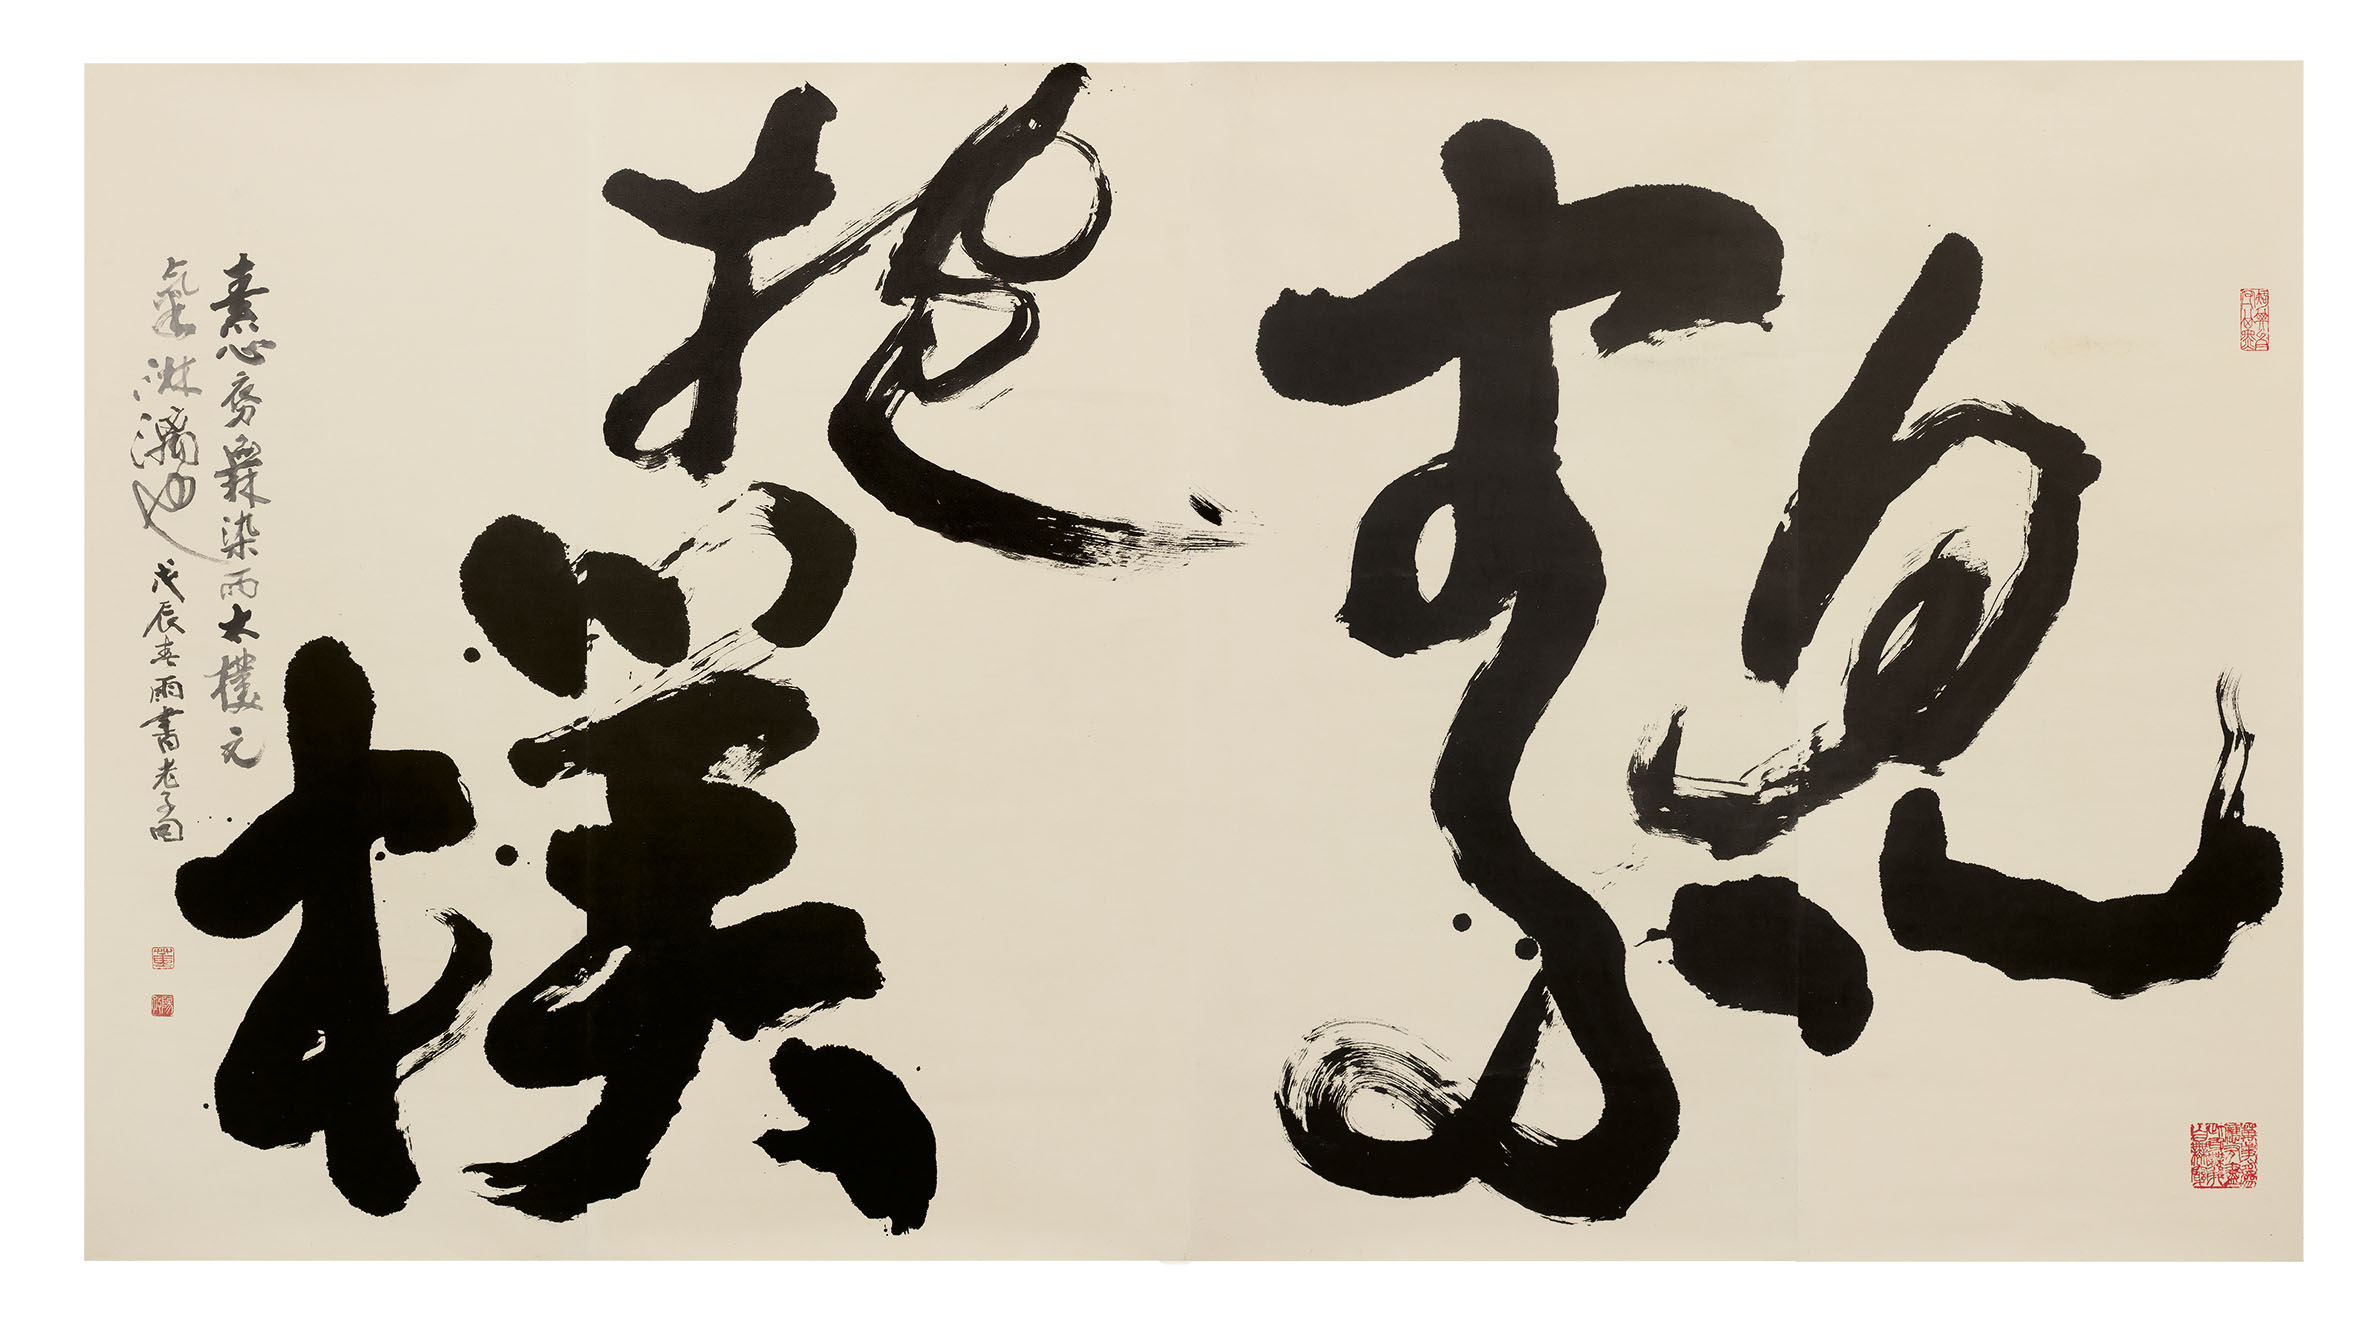 見素
抱樸
素心橆染而大樸元
氣淋漓也 戊辰春雨書老子句